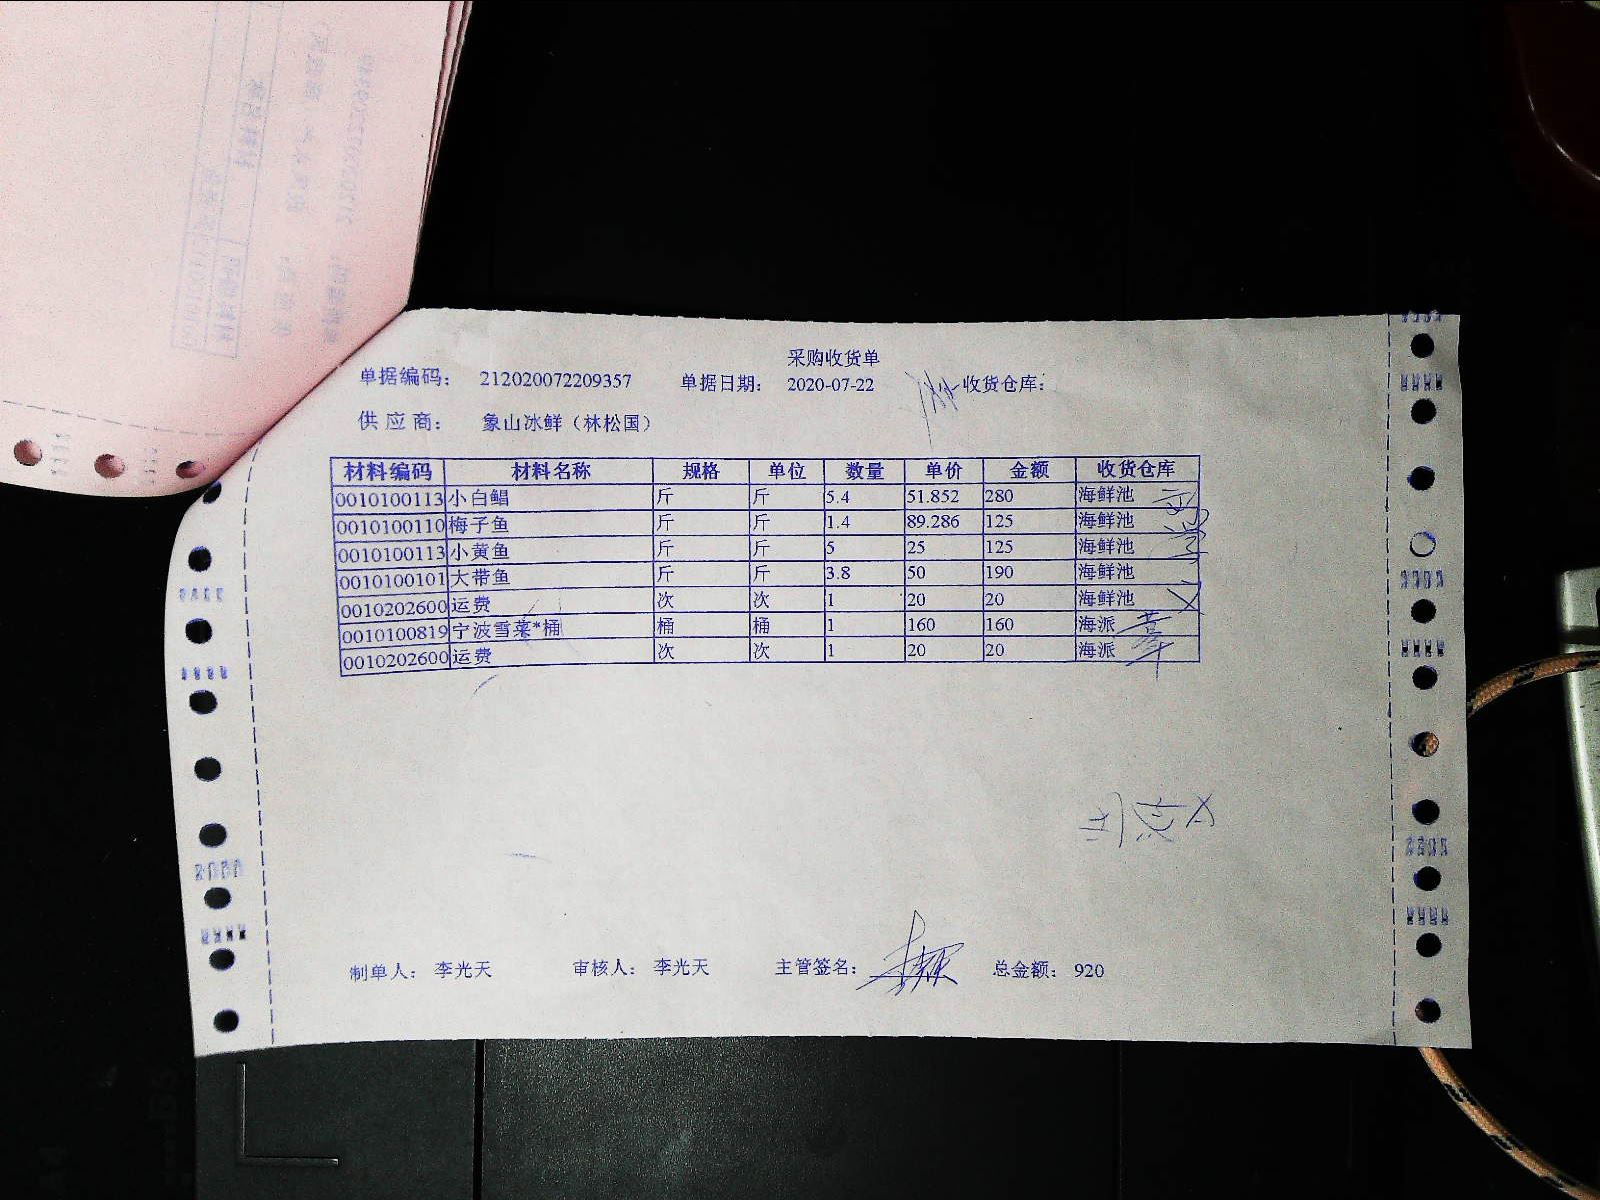 采购收货单
单据编码： 212020072209357 单据日期： 2020-07-22 收货仓库：
供应商： 象山冰鲜（林松国）
材料编码 材料名称 规格 单位 数量 单价 金额 收货仓库
0010100113 小白鲳 斤 斤 5.4 51.852 280 海鲜池
0010100110 梅子鱼 斤 斤 1.4 89.286 125 海鲜池
0010100113 小黄鱼 斤 斤 5 25 125 海鲜池
0010100101 大带鱼 斤 斤 3.8 50 190 海鲜池
0010202600 运费 次 次 1 20 20 海鲜池
0010100819 宁波雪菜*桶 桶 桶 1 160 160 海派
0010202600 运费 次 次 1 20 20 海派
制单人： 李光天 审核人： 李光天 主管签名： 总金额： 920